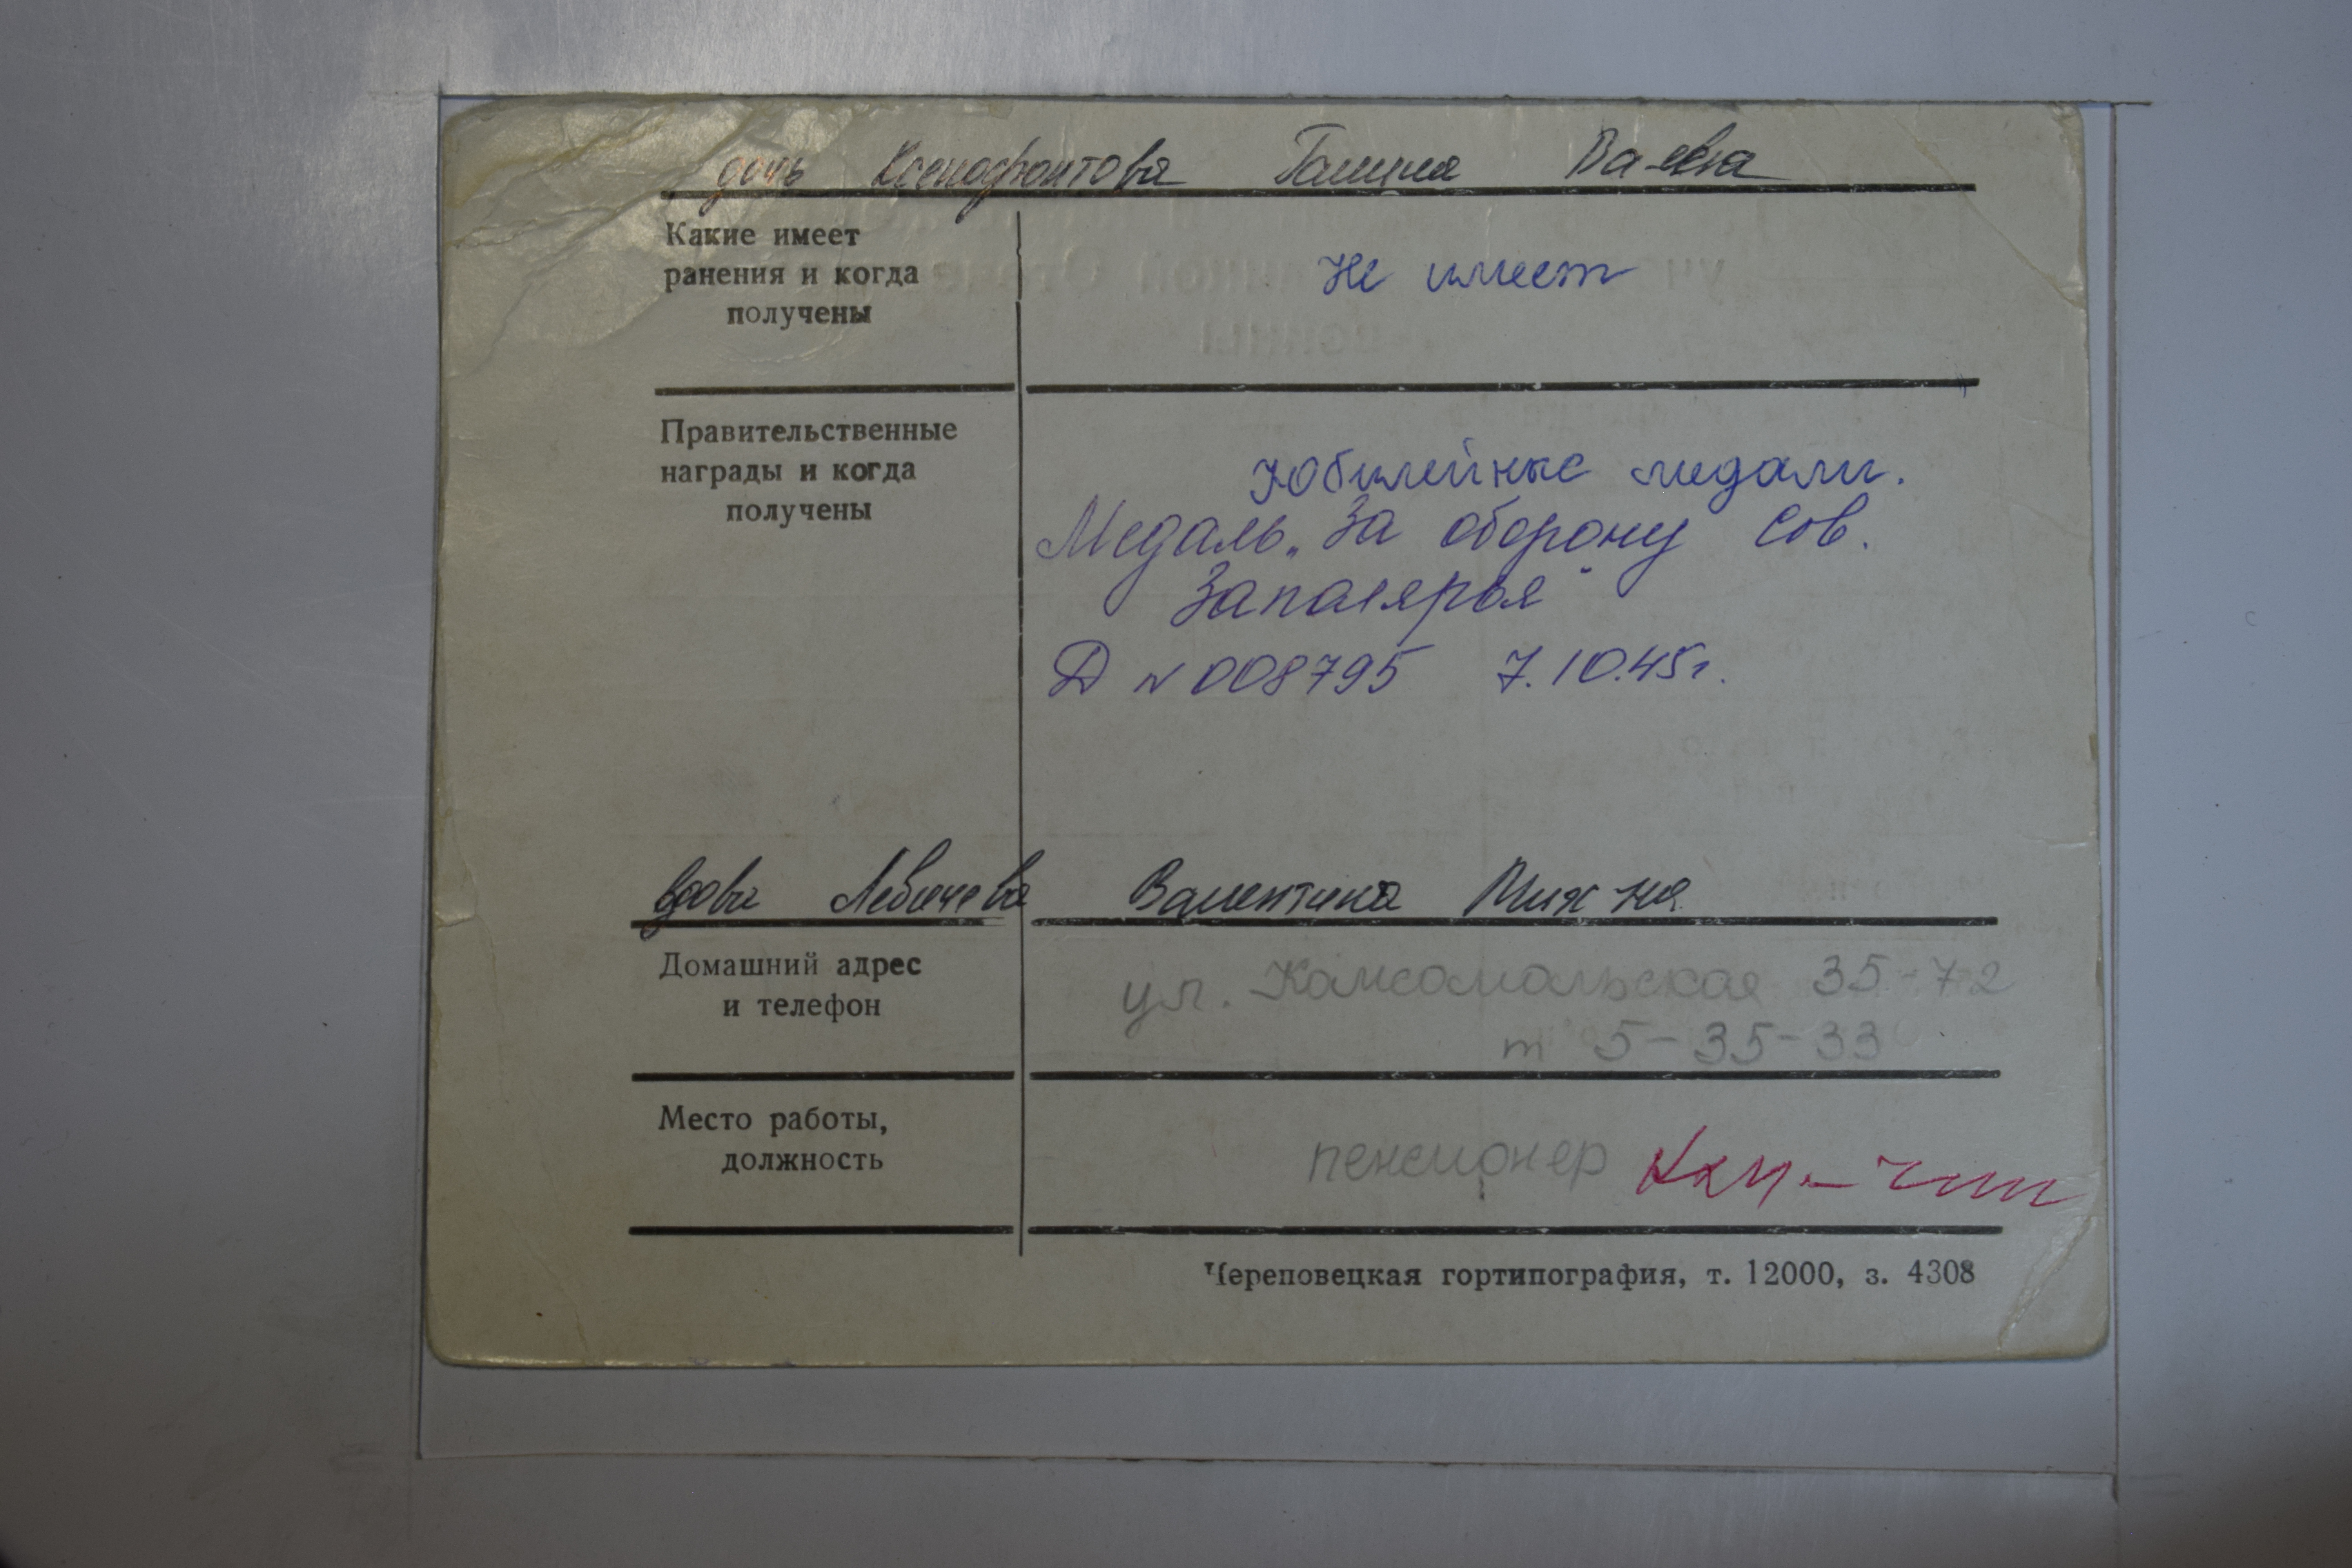 дочь Ксенофонтова Галина Ва-евна
Какие имеет
ранения и когда
получены
Не имеет
Правительственные
награды и когда
получены
Юбилейные медали.
Медаль „За оборону Сов.
Заполярья"
Д № 008795 7.10.45г.
вдова Валентина Мих-на
Домашний адрес
и телефон
ул. Комсомольская 35-72
т 5-35-33
Место работы,
должность
пенсионер
Череповецкая гортипография, т. 12000, з. 4308